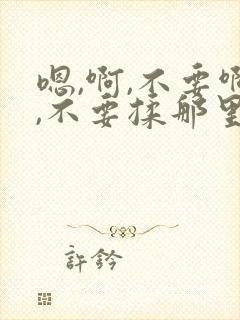 嗯,啊,不要啊
,不要揉那里
許鈐